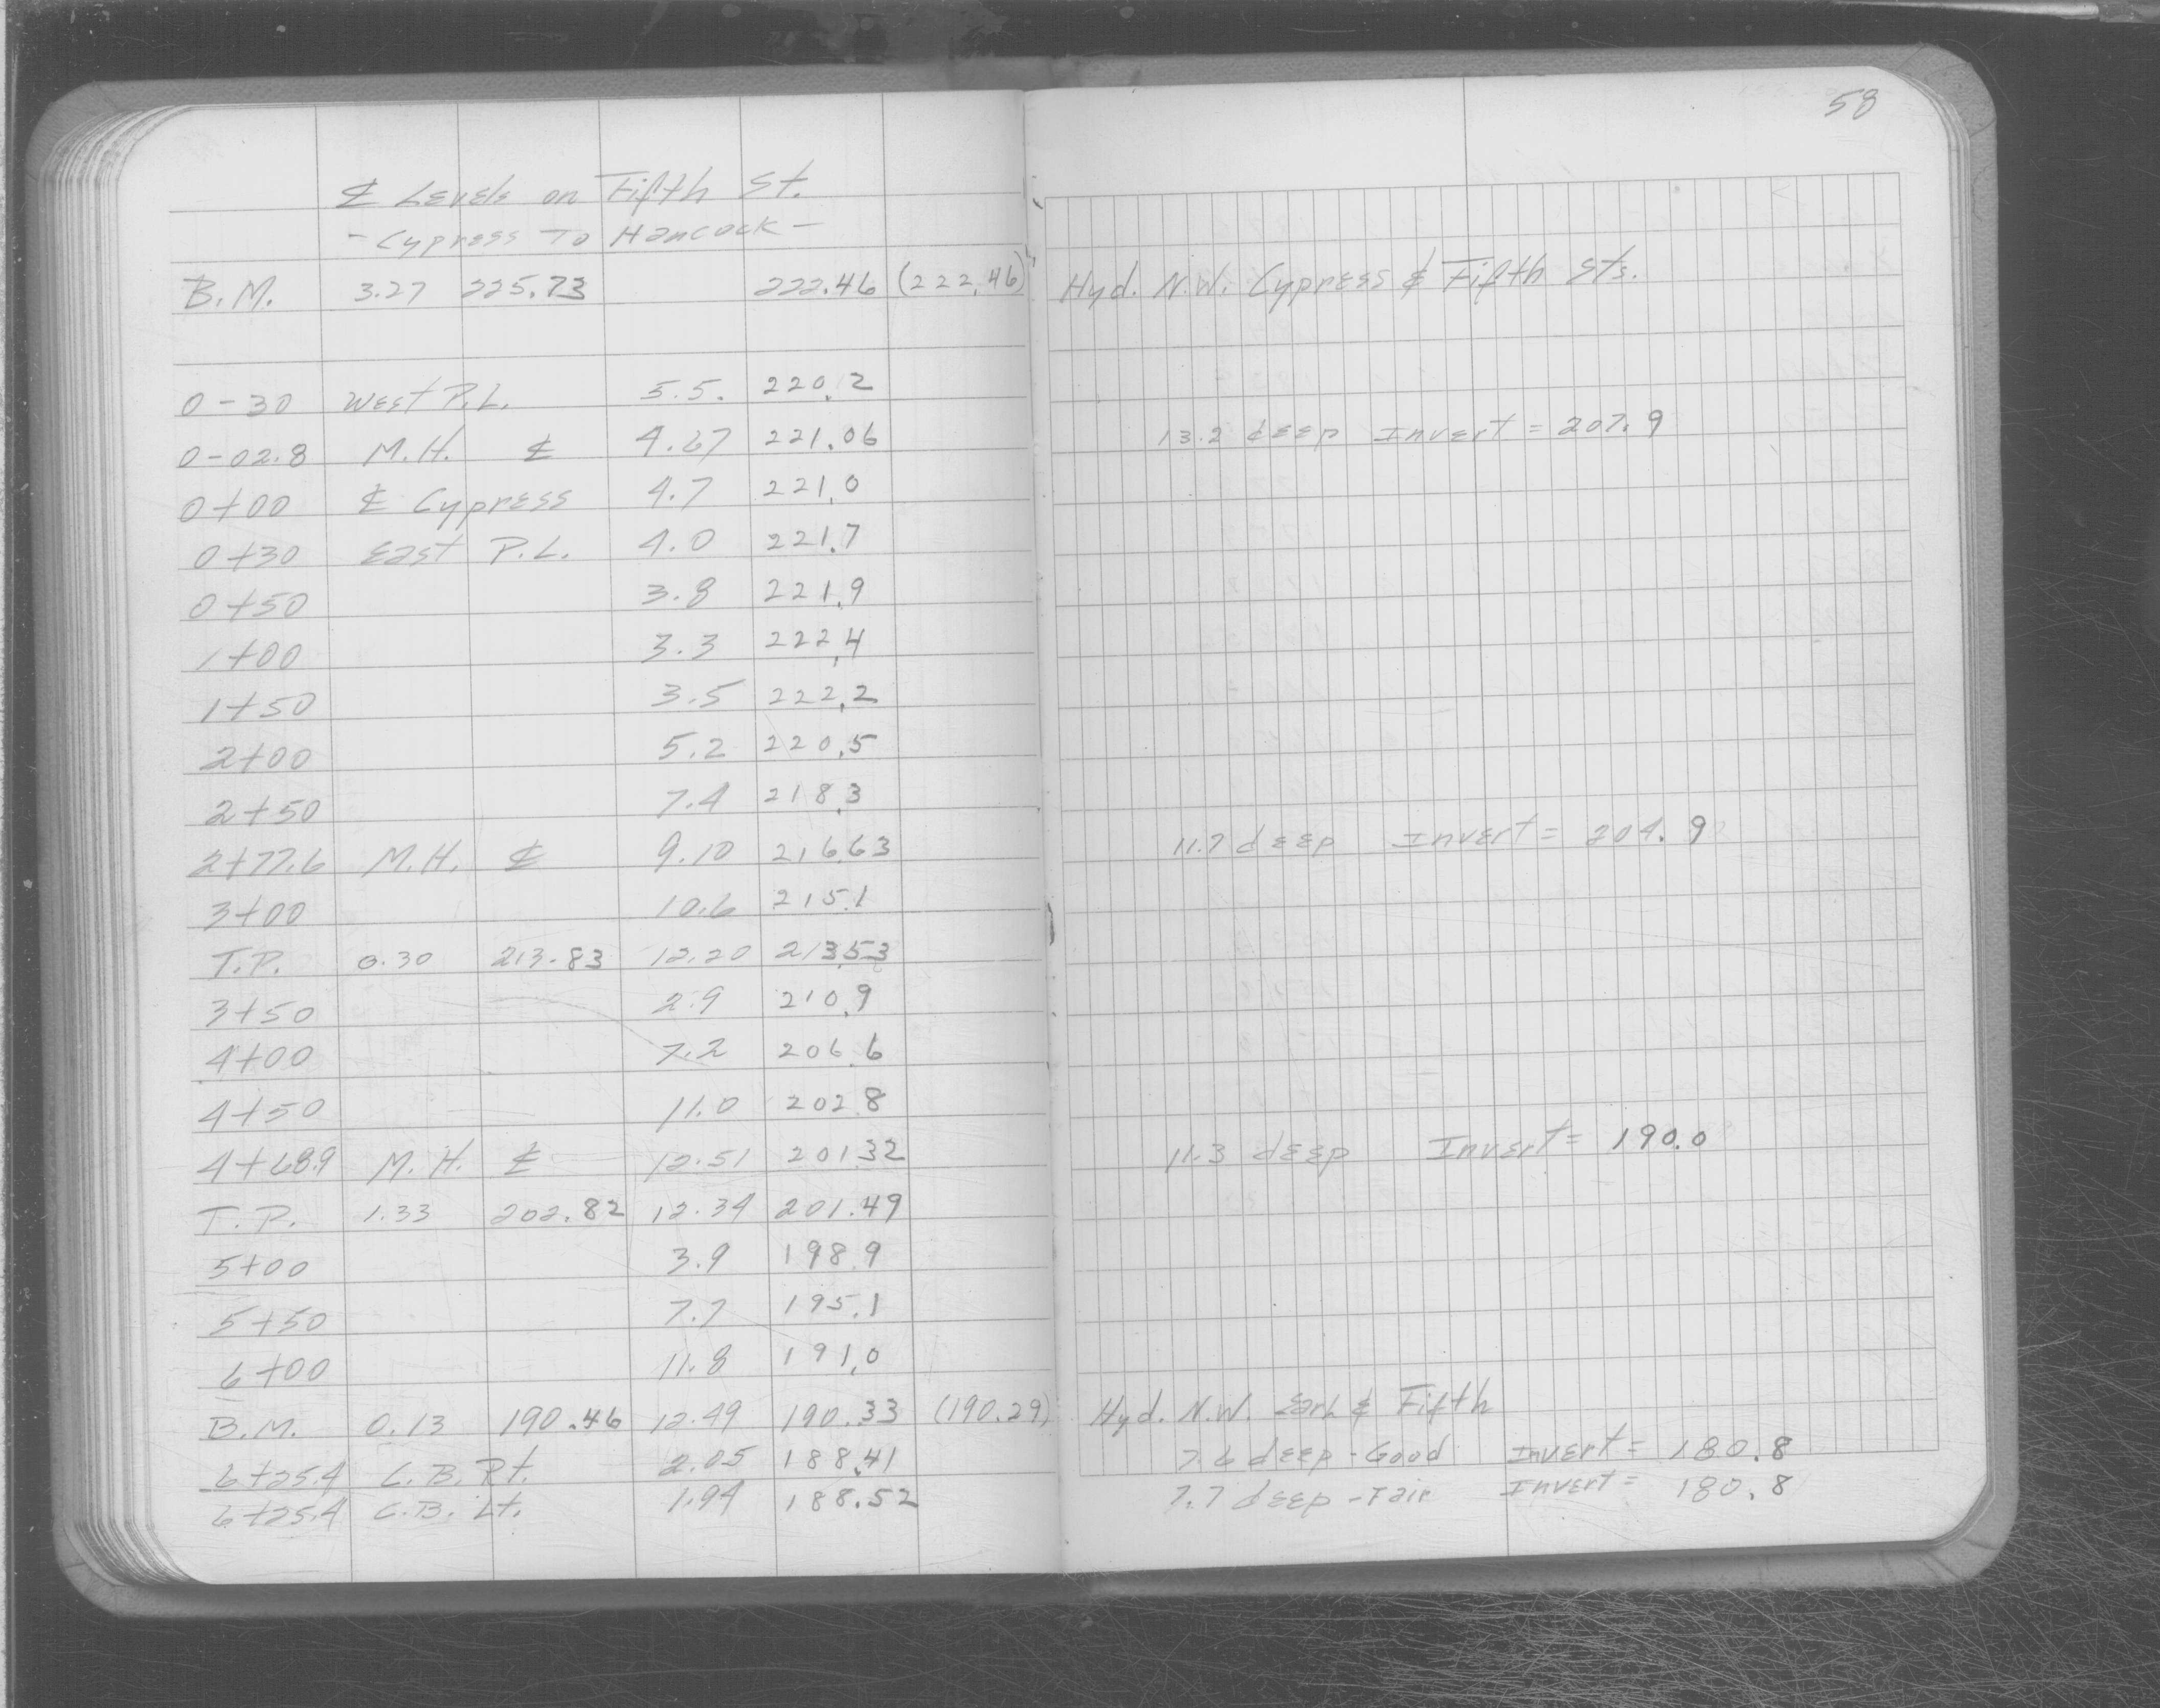 58
℄ Levels on Fifth St.
- Cypress To Hancock -
B.M. 3.27 225.73 222.46 (222.46) Hyd. N.W. Cypress & Fifth Sts.
0-30 West P.L. 5.5. 220.2
0-02.8 M.H. ℄ 4.67 221.06 13.2 deep Invert = 207.9
0+00 ℄ Cypress 4.7 221.0
0+30 East P.L. 4.0 221.7
0+50 3.8 221.9
1+00 3.3 222.4
1+50 3.5 222.2
2+00 5.2 220.5
2+50 7.4 218.3
2+77.6 M.H. ℄ 9.10 216.63 11.7 deep Invert = 204.9
3+00 10.6 215.1
T.P. 0.30 213.83 12.20 213.53
3+50 2.9 210.9
4+00 7.2 206.6
4+50 11.0 202.8
4+68.9 M.H. ℄ 12.51 201.32 11.3 deep Invert = 190.0
T.P. 1.33 202.82 12.34 201.49
5+00 3.9 198.9
5+50 7.7 195.1
6+00 11.8 191.0
B.M. 0.13 190.46 12.49 190.33 (190.29) Hyd. N.W. Earl & Fifth
6+25.4 C.B. Rt. 2.05 188.41 7.6 deep - Good Invert = 180.8
6+25.4 C.B. Lt. 1.94 188.52 7.7 deep - Fair Invert = 180.8